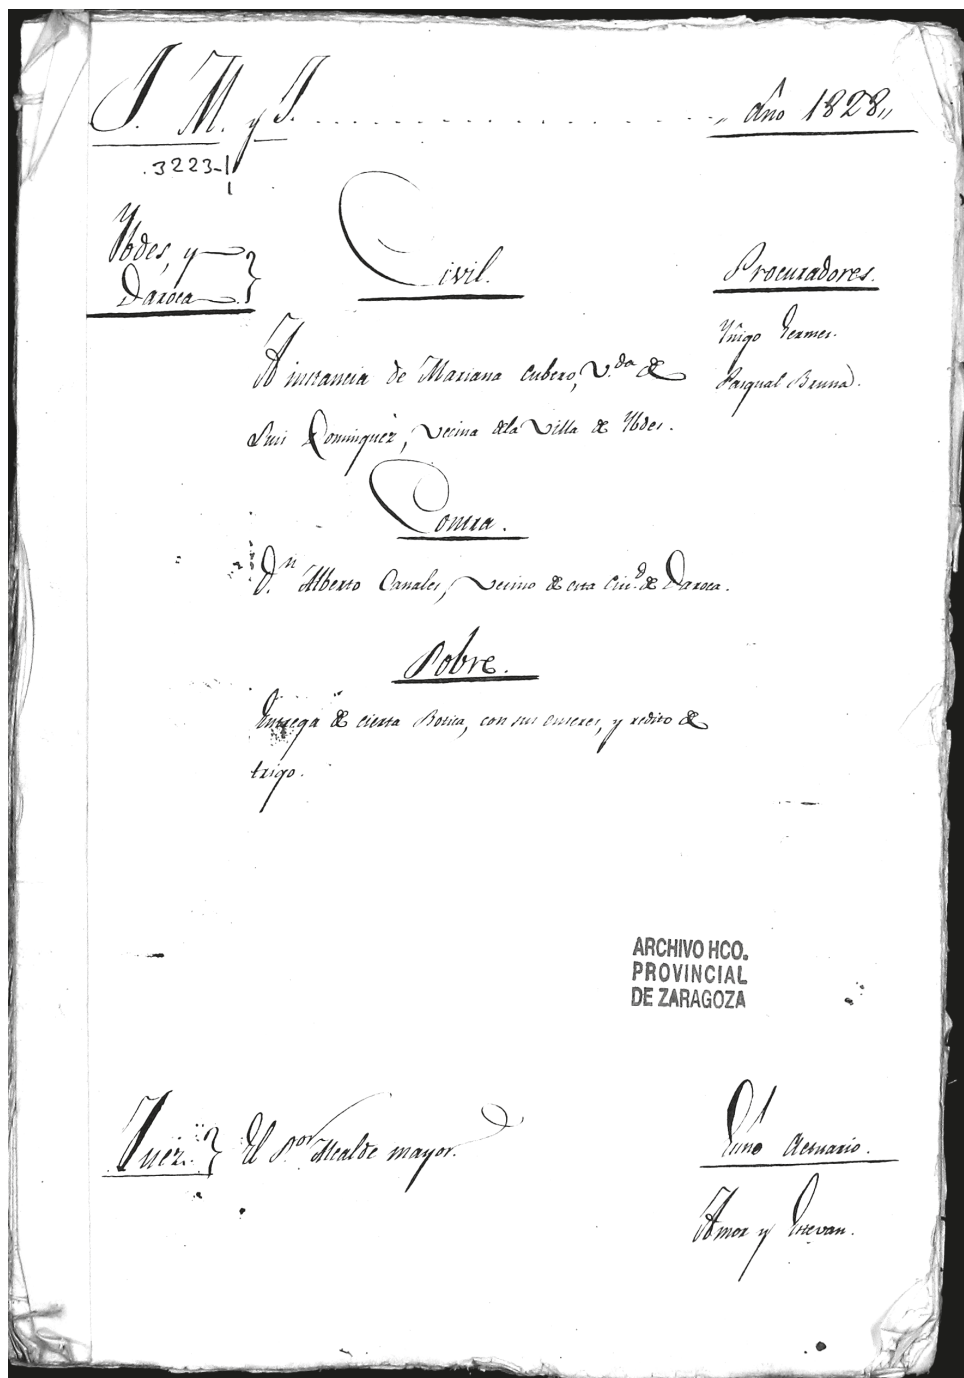 J. M. y J. Año 1828
3223-1
1
Ybdes, y
Daroca
Civil.
Procuradores.
Yñigo
Pasqual Bruna.
A instancia de Mariana Cubero, V.da de
Luis Dominguez, Vecina dela Villa de Ybdes.
Contra.
D.n Alberto Canales, Vecino de esta Ciu.d de Daroca.
Sobre.
Entrega de cierta Botica, con sus enseres, y redito de
trigo.
ARCHIVO HCO.
PROVINCIAL
DE ZARAGOZA
Juez. El S.or Alcalde mayor.
Esno Actuario.
Amor y Estevan.